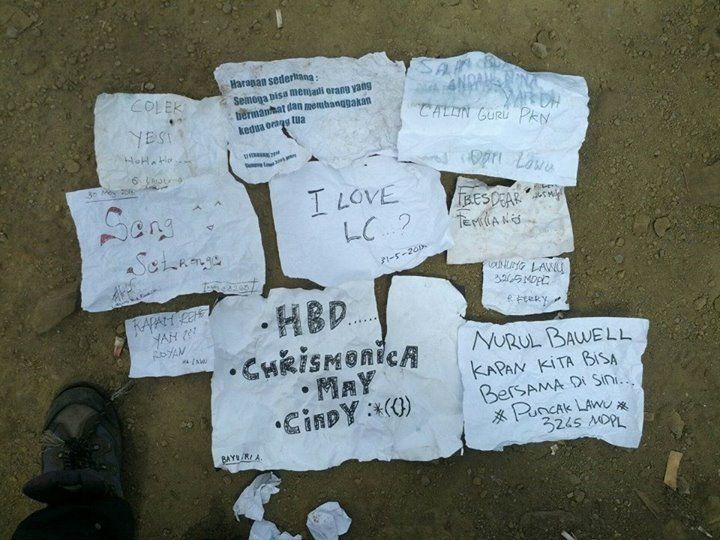 COLEK
YESI
HaHaHa...
Harapan sederhana :
Semoga bisa menjadi orang yang
bermanfaat dan membanggakan
kedua orang tua
17 FEBRUARI
CALON GURU PKN
DARI LAWU
I LOVE
LC...?
31-5-2016
30 May 2016
Sang
GUNUNG LAWU
3265 MDPL
KAPAN
YAH
ROYAN
• HBD.....
• CHRISMONICA
• MAY
• CINDY :*({})
BAYU
NURUL BAWELL
KAPAN KITA BISA
BERSAMA DI SINI...
* PUNCAK LAWU *
3265 MDPL